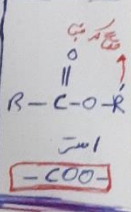 O
R-C-O-R'
استر
-COO-